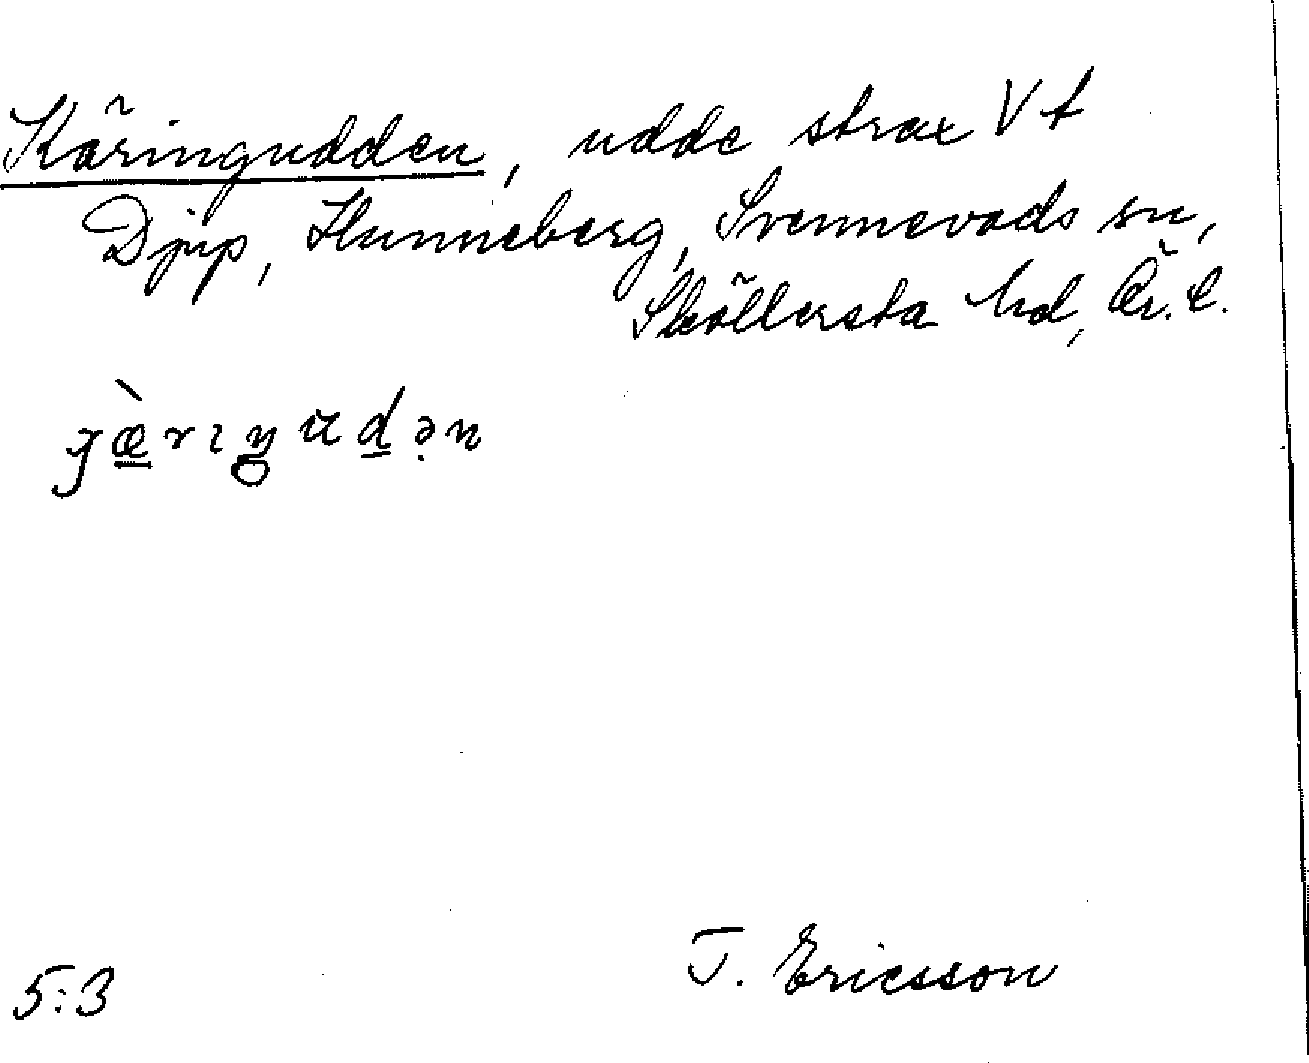 Käringudden, udde strax V t
Djup, Hunneberg, Svennevads sn,
Sköllersta hd, Ör. l.
5:3
T. Ericsson